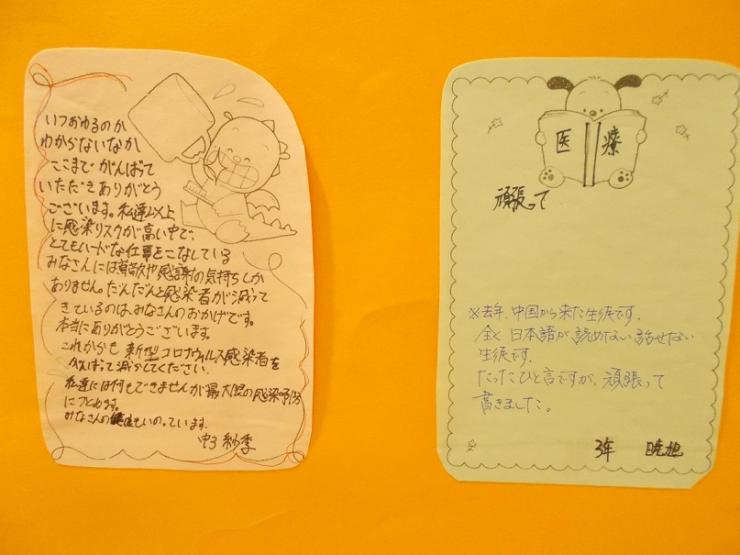 いつおわるのか
わからないなか
ここまでがんばって
いただきありがとう
ございます。私達以上
に感染リスクが高い中で、
とてもハードな仕事をこなしている
みなさんには尊敬や感謝の気持ちしか
ありません。だんだんと感染者が減って
きているのは、みなさんのおかげです。
本当にありがとうございます。
これからも 新型コロナウィルス感染者を
がんばって減らしてください。
私達には何もできませんが最大限の感染予防
につとめます。
みなさんの健康をいのっています。
中3 紗季
医療
頑張って
※去年、中国から来た生徒です。
全く日本語が読めない話せない
生徒です。
たったひと言ですが、頑張って
書きました。
3年 暁旭